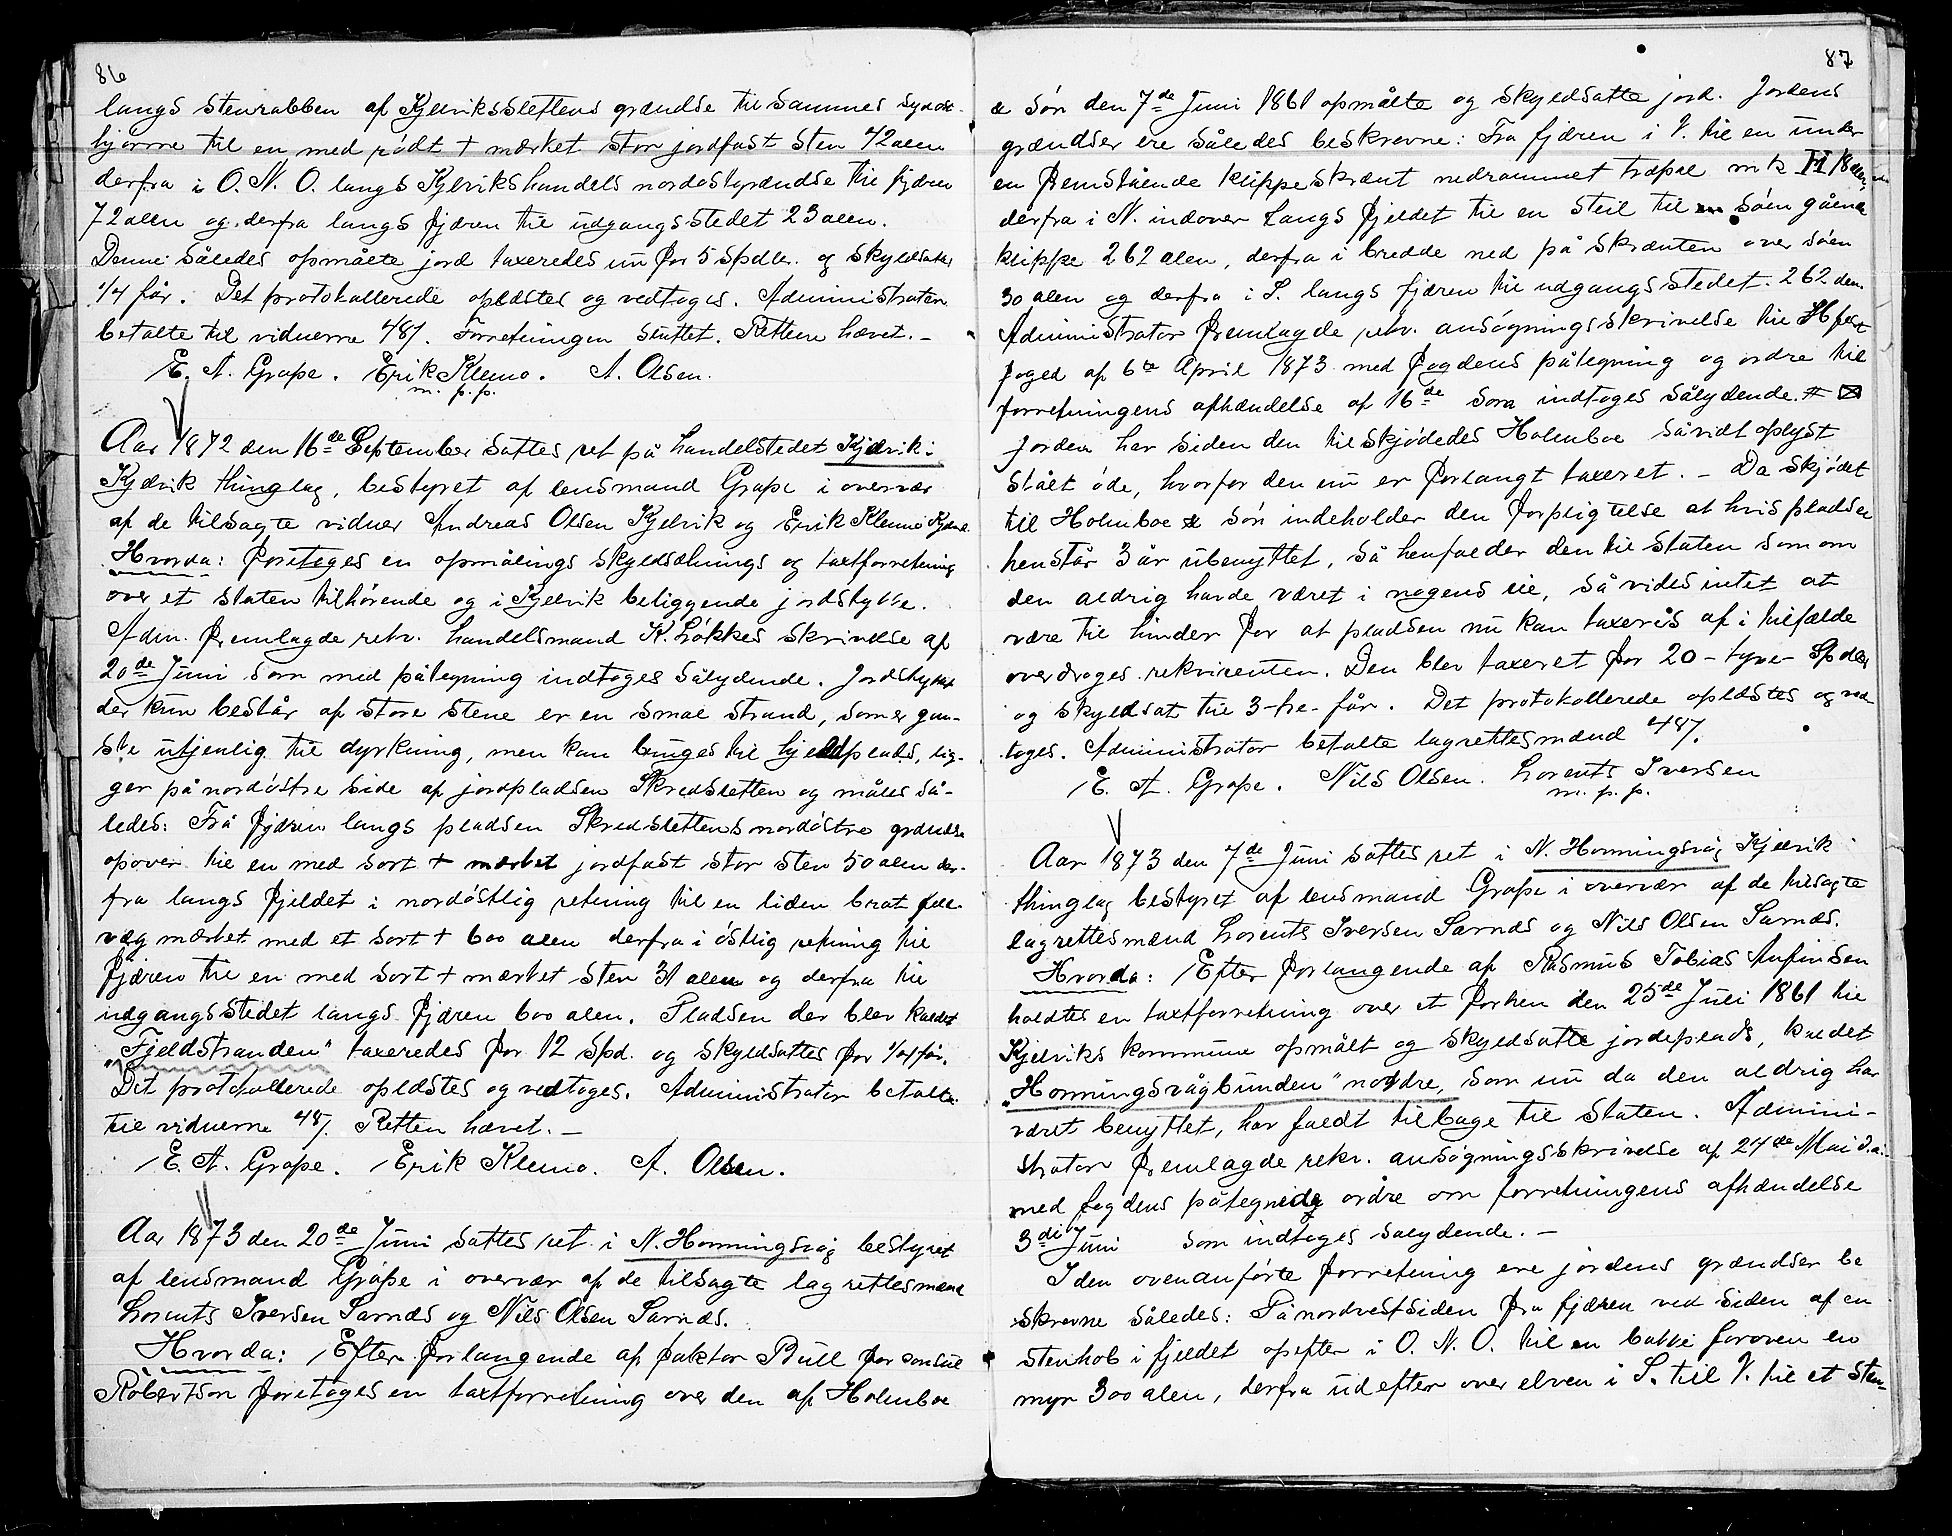 86
langs stenrabben af Kjelvikslettens grændse til sammes syd
hjørne til en med rødt + mærket stor jordfast sten 42 alen
derfra i O. N. O. langs Kjelvikshandels nordostgrændse til fjæren
72 alen og derfra langs fjæren til udgangsstedet 23 alen.
Denne således opmålte jord taxeredes nu for 5 Spdlr. og skyldsattes
1/4 får. Det protokollerede oplæstes og vedtoges. Administrator
betalte til vidnerne 48/. Forretningen sluttet. Retten hævet. –
E. A. Grape. Erik Klemo. A. Olsen.
m. p. p.
Aar 1872 den 16de September sattes ret på handelstedet Kjelvik i
Kjelvik thinglag, bestyret af lensmand Grape i overvær
af de tilsagte vidner Andreas Olsen Kjelvik og Erik Klemo Kjelvik
Hvorda: foretoges en opmålings skyldsætnings og taxtforretning
over et staten tilhørende og i Kjelvik beliggende jordstykke.
Adm. fremlagde rekv. handelsmand K. Løkkes skrivelse af
20de Juni som med påtegning indtoges sålydende. Jordstykket
der kun består af store stene er en smal strand, som er gan-
ske utjenlig til dyrkning, men kan bruges til hjeldplads, lig-
ger på nordøstre side af jordpladsen Skredsletten og måles så-
ledes: Fra fjæren langs pladsen Skredslettens nordøstre grændse
opover til en med sort + mærket jordfast stor sten 50 alen der-
fra langs fjeldet i nordøstlig retning til en liden brat fjeld-
væg mærket med et sort + 600 alen derfra i østlig retning til
fjæren til en med sort + mærket sten 31 alen og derfra til
udgangsstedet langs fjæren 600 alen. Pladsen der blev kaldet
„Fjeldstranden" taxeredes for 12 Spd. og skyldsattes for 1/4 får.
Det protokollerede oplæstes og vedtoges. Administrator betalte
til vidnerne 48/. Retten hævet. –
E. A. Grape. Erik Klemo. A. Olsen.
Aar 1873 den 20de Juni sattes ret i N. Honningsvåg bestyret
af lensmand Grape i overvær af de tilsagte lagrettesmænd
Lorents Iversen Sarnæs og Nils Olsen Sarnæs.
Hvorda: Efter forlangende af faktor Bull for consul
Robertson foretoges en taxtforretning over den af Holmboe
87
& søn den 7de Juni 1861 opmålte og skyldsatte jord. Jordens
grændser ere således beskrevne: Fra fjæren i V. til en under
en fremstående klippeskrænt nedrammet træpæl mk H 18 alen,
derfra i N. indover langs fjeldet til en steil til søen gående
klippe 262 alen, derfra i bredde ned på skrænten over søen
30 alen og derfra i S. langs fjæren til udgangsstedet. 262 alen.
Administrator fremlagde rekv. ansøgningsskrivelse til Hfest
foged af 6te April 1873 med fogdens påtegning og ordre til
forretningens afhændelse af 16de som indtoges sålydende. #
Jorden har siden den tilskjødedes Holmboe såvidt oplyst
stået øde, hvorfor den nu er forlangt taxeret. – Da skjødet
til Holmboe & søn indeholder den forpligtelse at hvis pladsen
henstår 3 år ubenyttet, så henfalder den til staten som om
den aldrig havde været i nogens eie, så vides intet at
være til hinder for at pladsen nu kan taxeres af i tilfælde
overdrages rekvirenten. Den blev taxeret for 20 - tyve - Spdlr
og skyldsat til 3 - tre - får. Det protokollerede oplæstes og ved
toges. Administrator betalte lagrettesmænd 48/.
E. A. Grape. Nils Olsen. Lorents Iversen
m. p. p.
Aar 1873 den 7de Juni sattes ret i N. Honningsvåg Kjelvik
thinglag bestyret af lensmand Grape i overvær af de tilsagte
lagrettesmænd Lorents Iversen Sarnæs og Nils Olsen Sarnæs.
Hvorda: Efter forlangende af Rasmus Tobias Anfinsen
holdtes en taxtforretning over et forhen den 25de Juli 1861 til
Kjelviks kommune opmålt og skyldsatte jordeplads, kaldet
„Honningsvågbunden" nordre, som nu da den aldrig har
været benyttet, har faldt tilbage til staten. Admini-
strator fremlagde rekv. ansøgningsskrivelse af 24de Mai d.a.
med fogdens påtegnede ordre om forretningens afhændelse
3die Juni som indtoges sålydende. –
I den ovenanførte forretning ere jordens grændser be
skrevne således: På nordvestsiden fra fjæren ved siden af en
stenhob i fjeldet opefter i O. N. O. til en bakke foroven en
myr 300 alen, derfra udefter over elven i S. til V. til et sten-